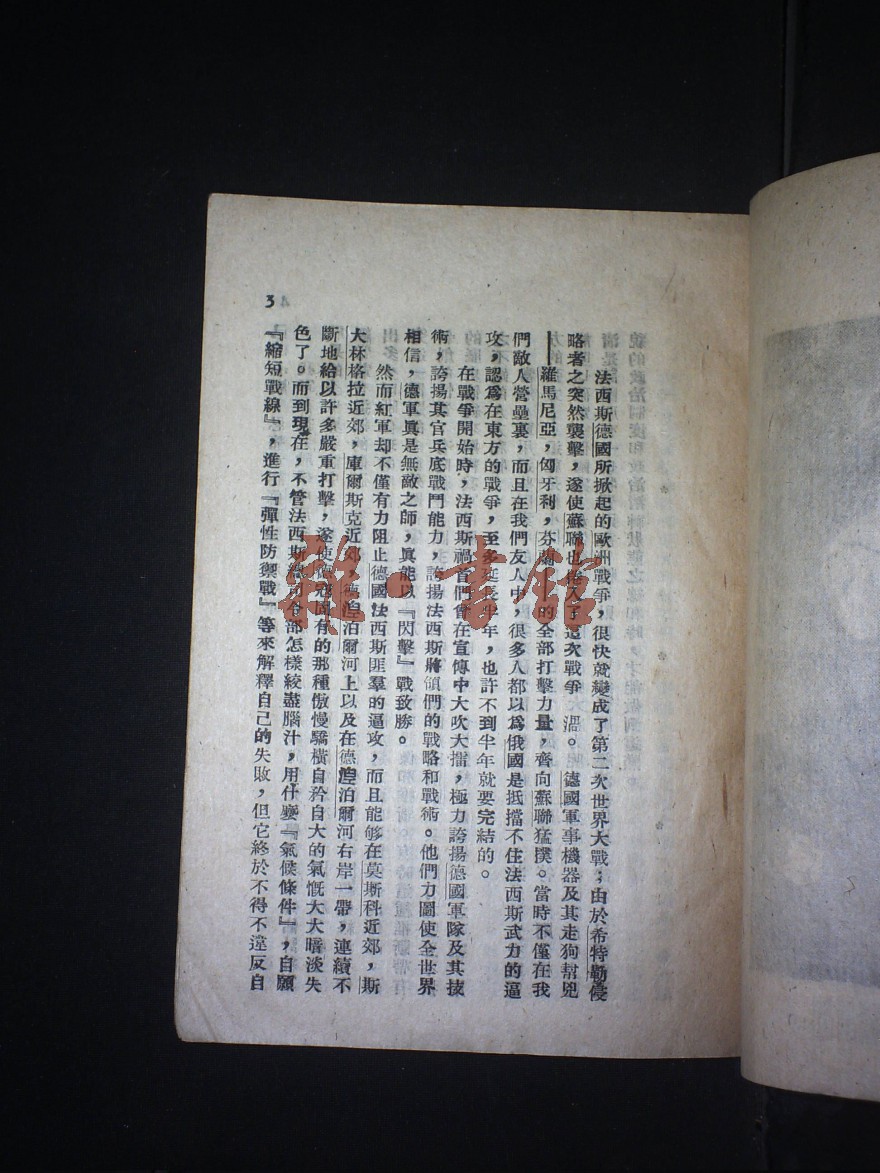 法西斯德國所掀起的歐洲戰爭，很快就變成了第二次世界大戰；由於希特勒侵
略者之突然襲擊，遂使蘇聯也捲入了這次戰爭 渦。德國軍事機器及其走狗幫兇
——羅馬尼亞，匈牙利，芬蘭——的全部打擊力量，齊向蘇聯猛撲。當時不僅在我
們敵人營壘裏，而且在我們友人中，很多人都以爲俄國是抵擋不住法西斯武力的逼
攻，認爲在東方的戰爭，至多延長半年，也許不到半年就要完結的。
在戰爭開始時，法西斯禍首們會在宣傳中大吹大擂，極力誇揚德國軍隊及其技
術，誇揚其官兵底戰鬥能力，誇揚法西斯將領們的戰略和戰術。他們力圖使全世界
相信，德軍眞是無敵之師，眞能以『閃擊』戰致勝。
然而紅軍却不僅有力阻止德國法西斯匪羣的逼攻，而且能够在莫斯科近郊，斯
大林格拉近郊，庫爾斯克近郊，德湟泊爾河上以及在德湟泊爾河右岸一帶，連續不
斷地給以許多嚴重打擊，遂使德寇固有的那種傲慢驕橫自矜自大的氣慨大大暗淡失
色了。而到現在，不管法西斯總司令部怎樣絞盡腦汁，用什麼『氣候條件』，自願
『縮短戰線』，進行『彈性防禦戰』等來解釋自己的失敗，但它終於不得不違反自
3
雜·書館